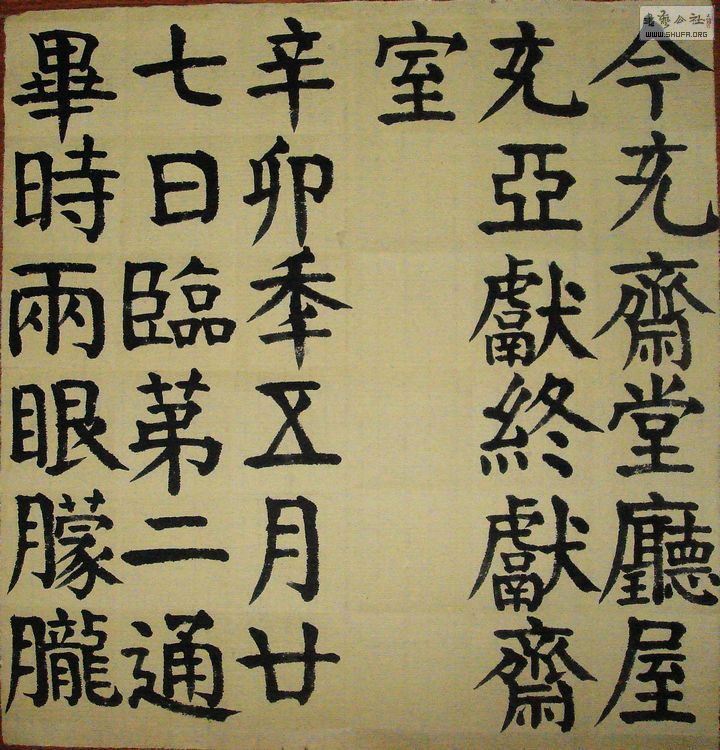 今充齋堂廳屋
充亞獻終獻齋
室
辛卯秊五月廿
七日臨第二通
畢時兩眼朦朧
書藝公社
WWW.SHUFA.ORG